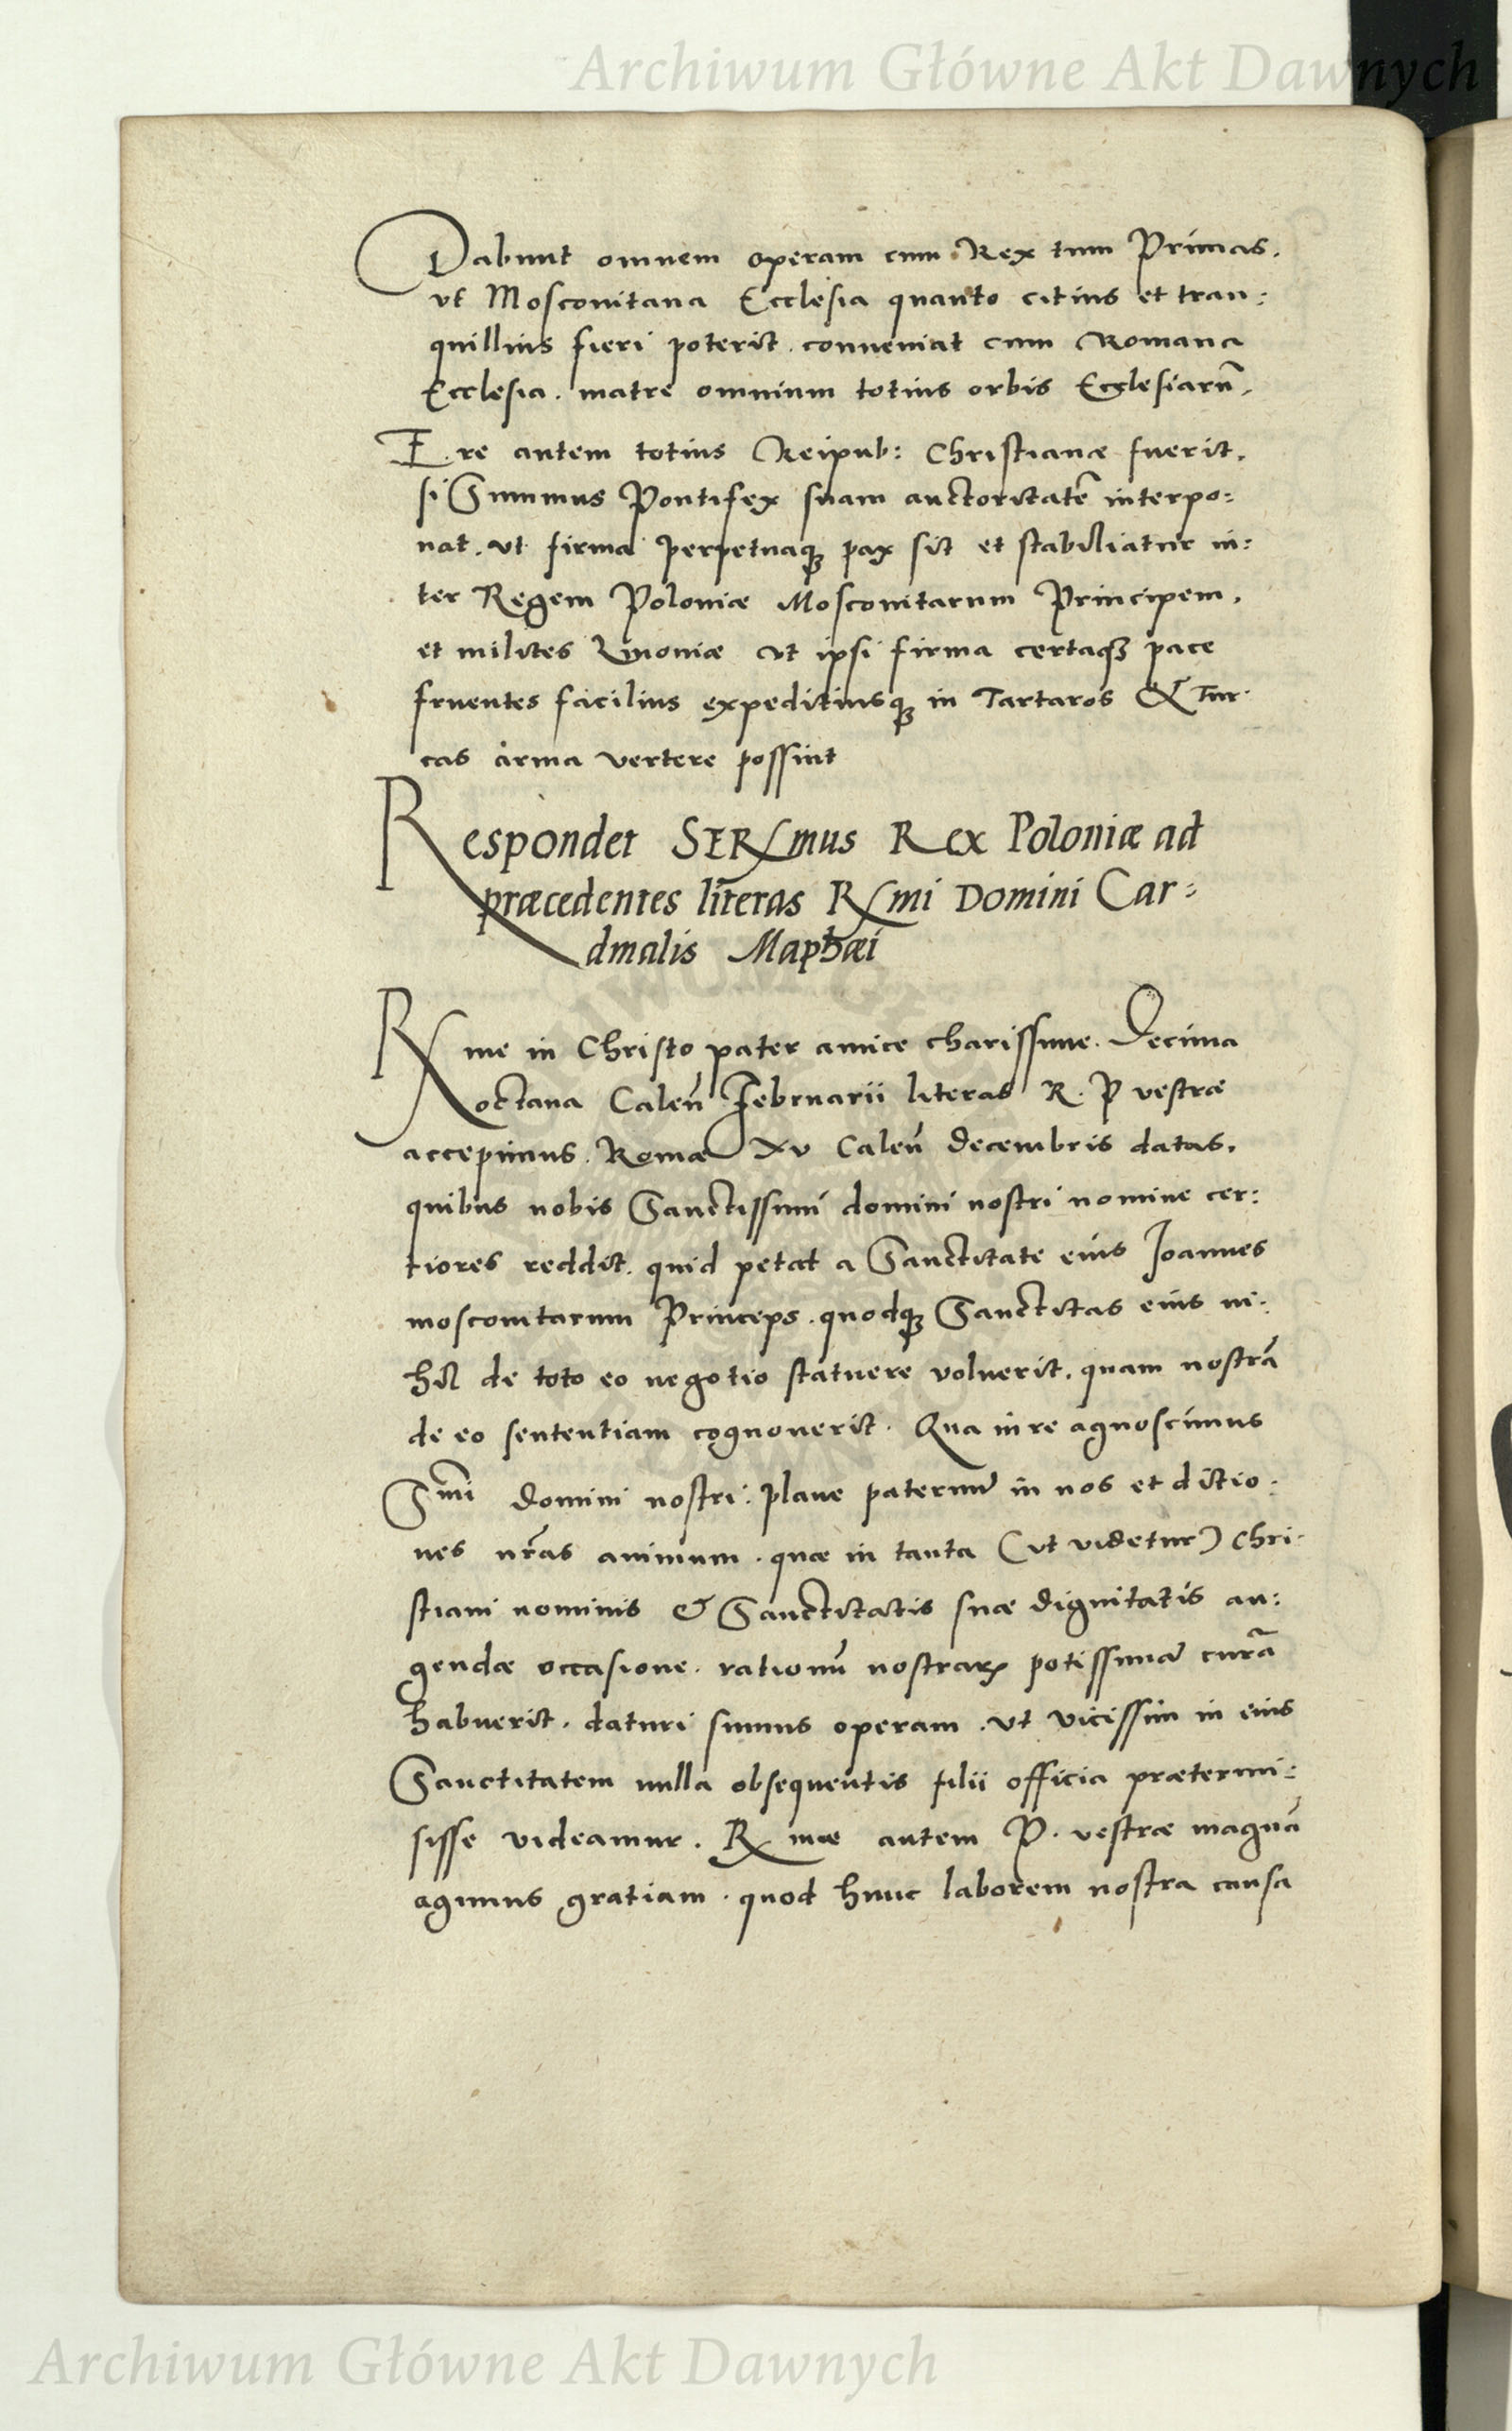 Archiwum Główne Akt Dawnych
Dabunt omnem operam cum Rex tum Primas.
vt Moscouitana Ecclesia quanto citius et tran:
quillius fieri poterit. conueniat cum Romana
Ecclesia. matre omnium totius orbis Ecclesiarũ.
E re autem totius Reipub: Christianæ fuerit.
si Summus Pontifex suam auctoritatẽ interpo:
nat. vt firma perpetuaq; pax sit et stabiliatur in:
ter Regem Poloniæ Moscouitarum Principem.
et milites Liuoniæ vt ipsi firma certaq; pace
fruentes facilius expeditiusq; in Tartaros & Tur
cas arma vertere possint
Respondet SERmus Rex Poloniæ ad
præcedentes literas Rmi Domini Car:
dinalis Maphæi
Rme in Christo pater amice charissime. Decima
octaua Caleñ Februarii literas R. P vestræ
accepimus. Romæ xv Caleñ decembris datas.
quibus nobis Sanctissimi domini nostri nomine cer:
tiores reddit. quid petat a Sanctitate eius Joannes
moscouitarum Princeps. quodq; Sanctitas eius ni:
hil de toto eo negotio statuere voluerit. quam nostrã
de eo sententiam cognouerit. Qua in re agnoscimus
Smi domini nostri. plane paternũ in nos et ditio:
nes nr̃as animum. quæ in tanta (vt videtur) Chri:
stiani nominis & Sanctitatis suæ dignitatis au:
gendæ occasione. rationũ nostrarꝝ potissimã curã
habuerit. daturi sumus operam. vt vicissim in eius
Sanctitatem nulla obsequentis filii officia prætermi:
sisse videamur. Rmæ autem P. vestræ magnã
agimus gratiam. quod hunc laborem nostra causa
Archiwum Główne Akt Dawnych